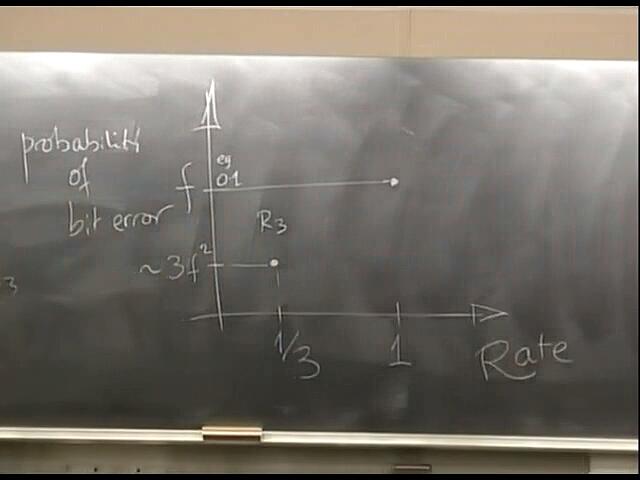 probability
of
bit error
f
eg
0.1
R3
~3f²
1/3
1
Rate
3